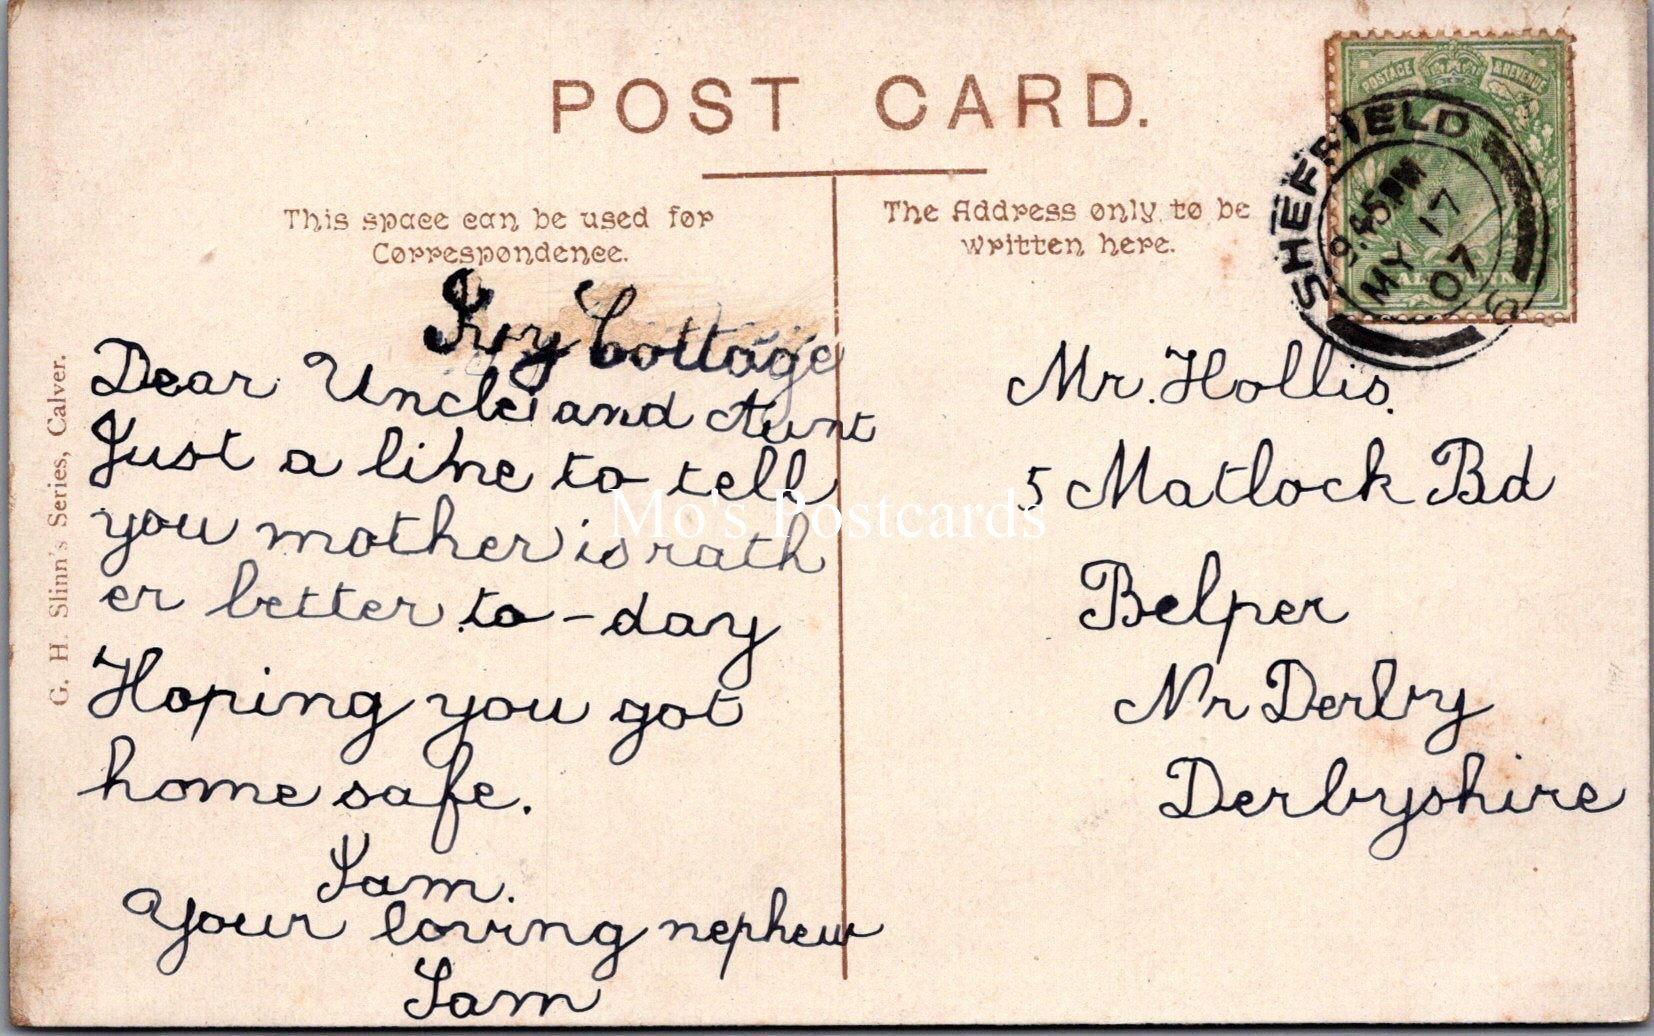 POST CARD.
This space can be used for
Correspondence.
The Address only to be
written here.
POSTAGE & REVENUE
SHEFFIELD
9.45PM
MY 17
07
G. H. Slinn's Series, Calver.
Ivy Cottage
Dear Uncle and Aunt
Just a line to tell
you mother is rath
er better to-day
Hoping you got
home safe.
I am.
Your loving nephew
Sam
Mr. Hollis.
5 Matlock Bd
Belper
Nr Derby
Derbyshire
Mo's Postcards